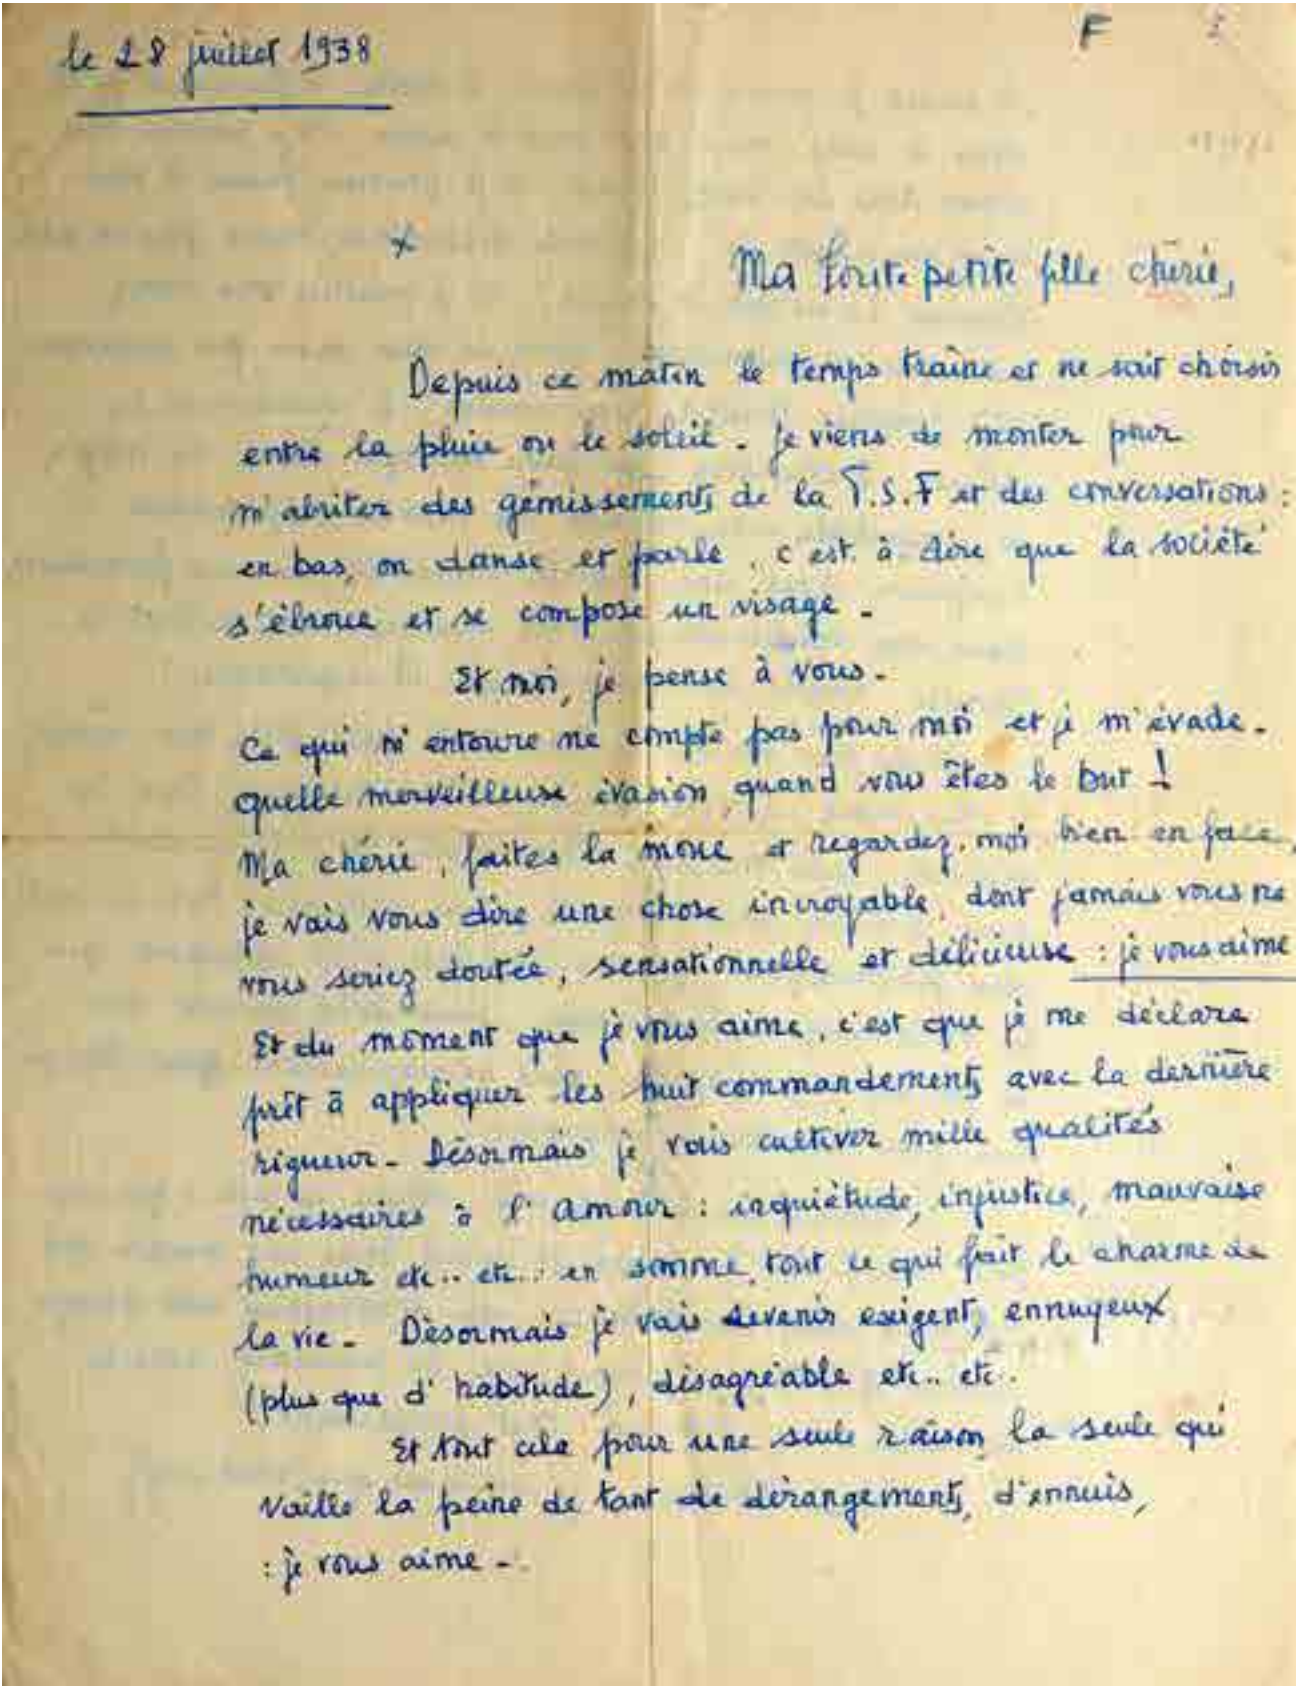 le 28 juillet 1938
F
x
Ma toute petite fille chérie,
Depuis ce matin le temps traîne et ne sait choisir
entre la pluie ou le soleil - je viens de monter pour
m'abriter des gémissements de la T.S.F et des conversations :
en bas, on danse et parle, c'est à dire que la société
s'ébroue et se compose un visage -
Et moi, je pense à vous -
Ce qui m'entoure ne compte pas pour moi et je m'évade -
quelle merveilleuse évasion, quand vous êtes le but !
Ma chérie, faites la moue et regardez-moi bien en face,
je vais vous dire une chose incroyable, dont jamais vous ne
vous seriez doutée, sensationnelle et délicieuse : je vous aime
Et du moment que je vous aime, c'est que je me déclare
prêt à appliquer les huit commandements avec la dernière
rigueur - Désormais je vais cultiver mille qualités
nécessaires à l'amour : inquiétude, injustice, mauvaise
humeur etc.. etc... en somme, tout ce qui fait le charme de
la vie - Désormais je vais devenir exigent, ennuyeux
(plus que d'habitude), désagréable etc.. etc..
Et tout cela pour une seule raison, la seule qui
vaille la peine de tant de dérangements, d'ennuis,
: je vous aime -